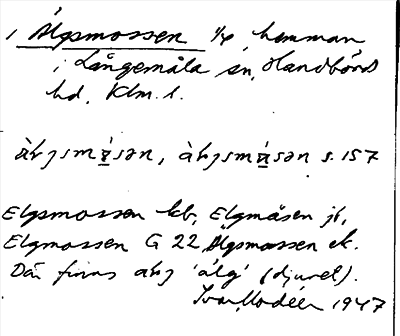 1 Älgsmossen 1/4 hemman
i Långemåla sn, Handbörds
hd. Klm. l.
s. 157
Elgsmossen kb, Elgmåsen jr,
Elgmossen G 22, Älgsmossen ek.
Där finns älg 'älg' (djuret).
Ivar Modéer 1947